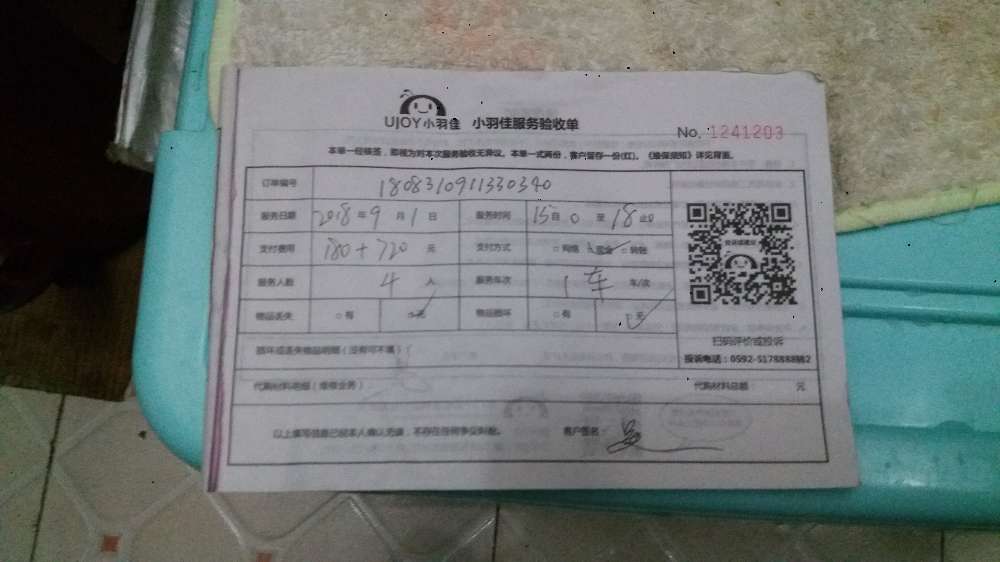 UJOY小羽佳 小羽佳服务验收单
No. 1241203
本单一经核签，即视为对本次服务验收无异议。本单一式两份，客户留存一份(红)。《维保须知》详见背面。
订单编号 1808310911330340
服务日期 2018年9月1日 服务时间 15自0至18止0
支付费用 180+720元 支付方式 □网络 □现金 □转账
服务人数 4人 服务车次 1车 车/次
物品丢失 □有 □无 物品损坏 □有 □无
扫码评价或投诉
损坏或丢失物品明细（没有可不填）
投诉电话：0592-5178888882
代购材料明细（维修业务） 代购材料总额 元
以上填写信息已经本人确认无误，不存在任何争议纠纷。 客户签名：